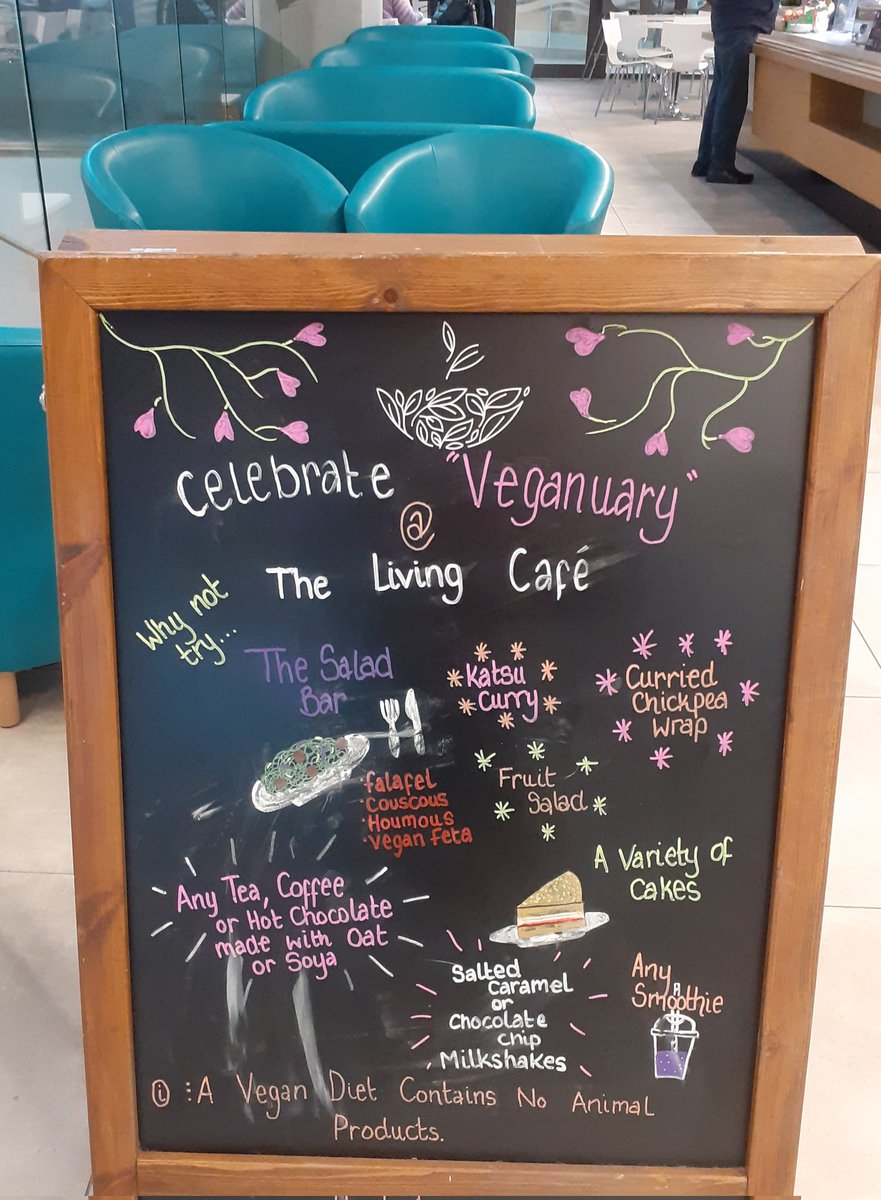 Celebrate "Veganuary"
@
The Living Café
Why not
try...
The Salad
Bar
Katsu
Curry
Curried
Chickpea
Wrap
·falafel
·Couscous
·Houmous
·Vegan Feta
Fruit
Salad
A Variety of
Cakes
Any Tea, Coffee
or Hot Chocolate
made with Oat
or Soya
Salted
Caramel
or
Chocolate
Chip
Milkshakes
Any
Smoothie
i : A Vegan Diet Contains No Animal
Products.